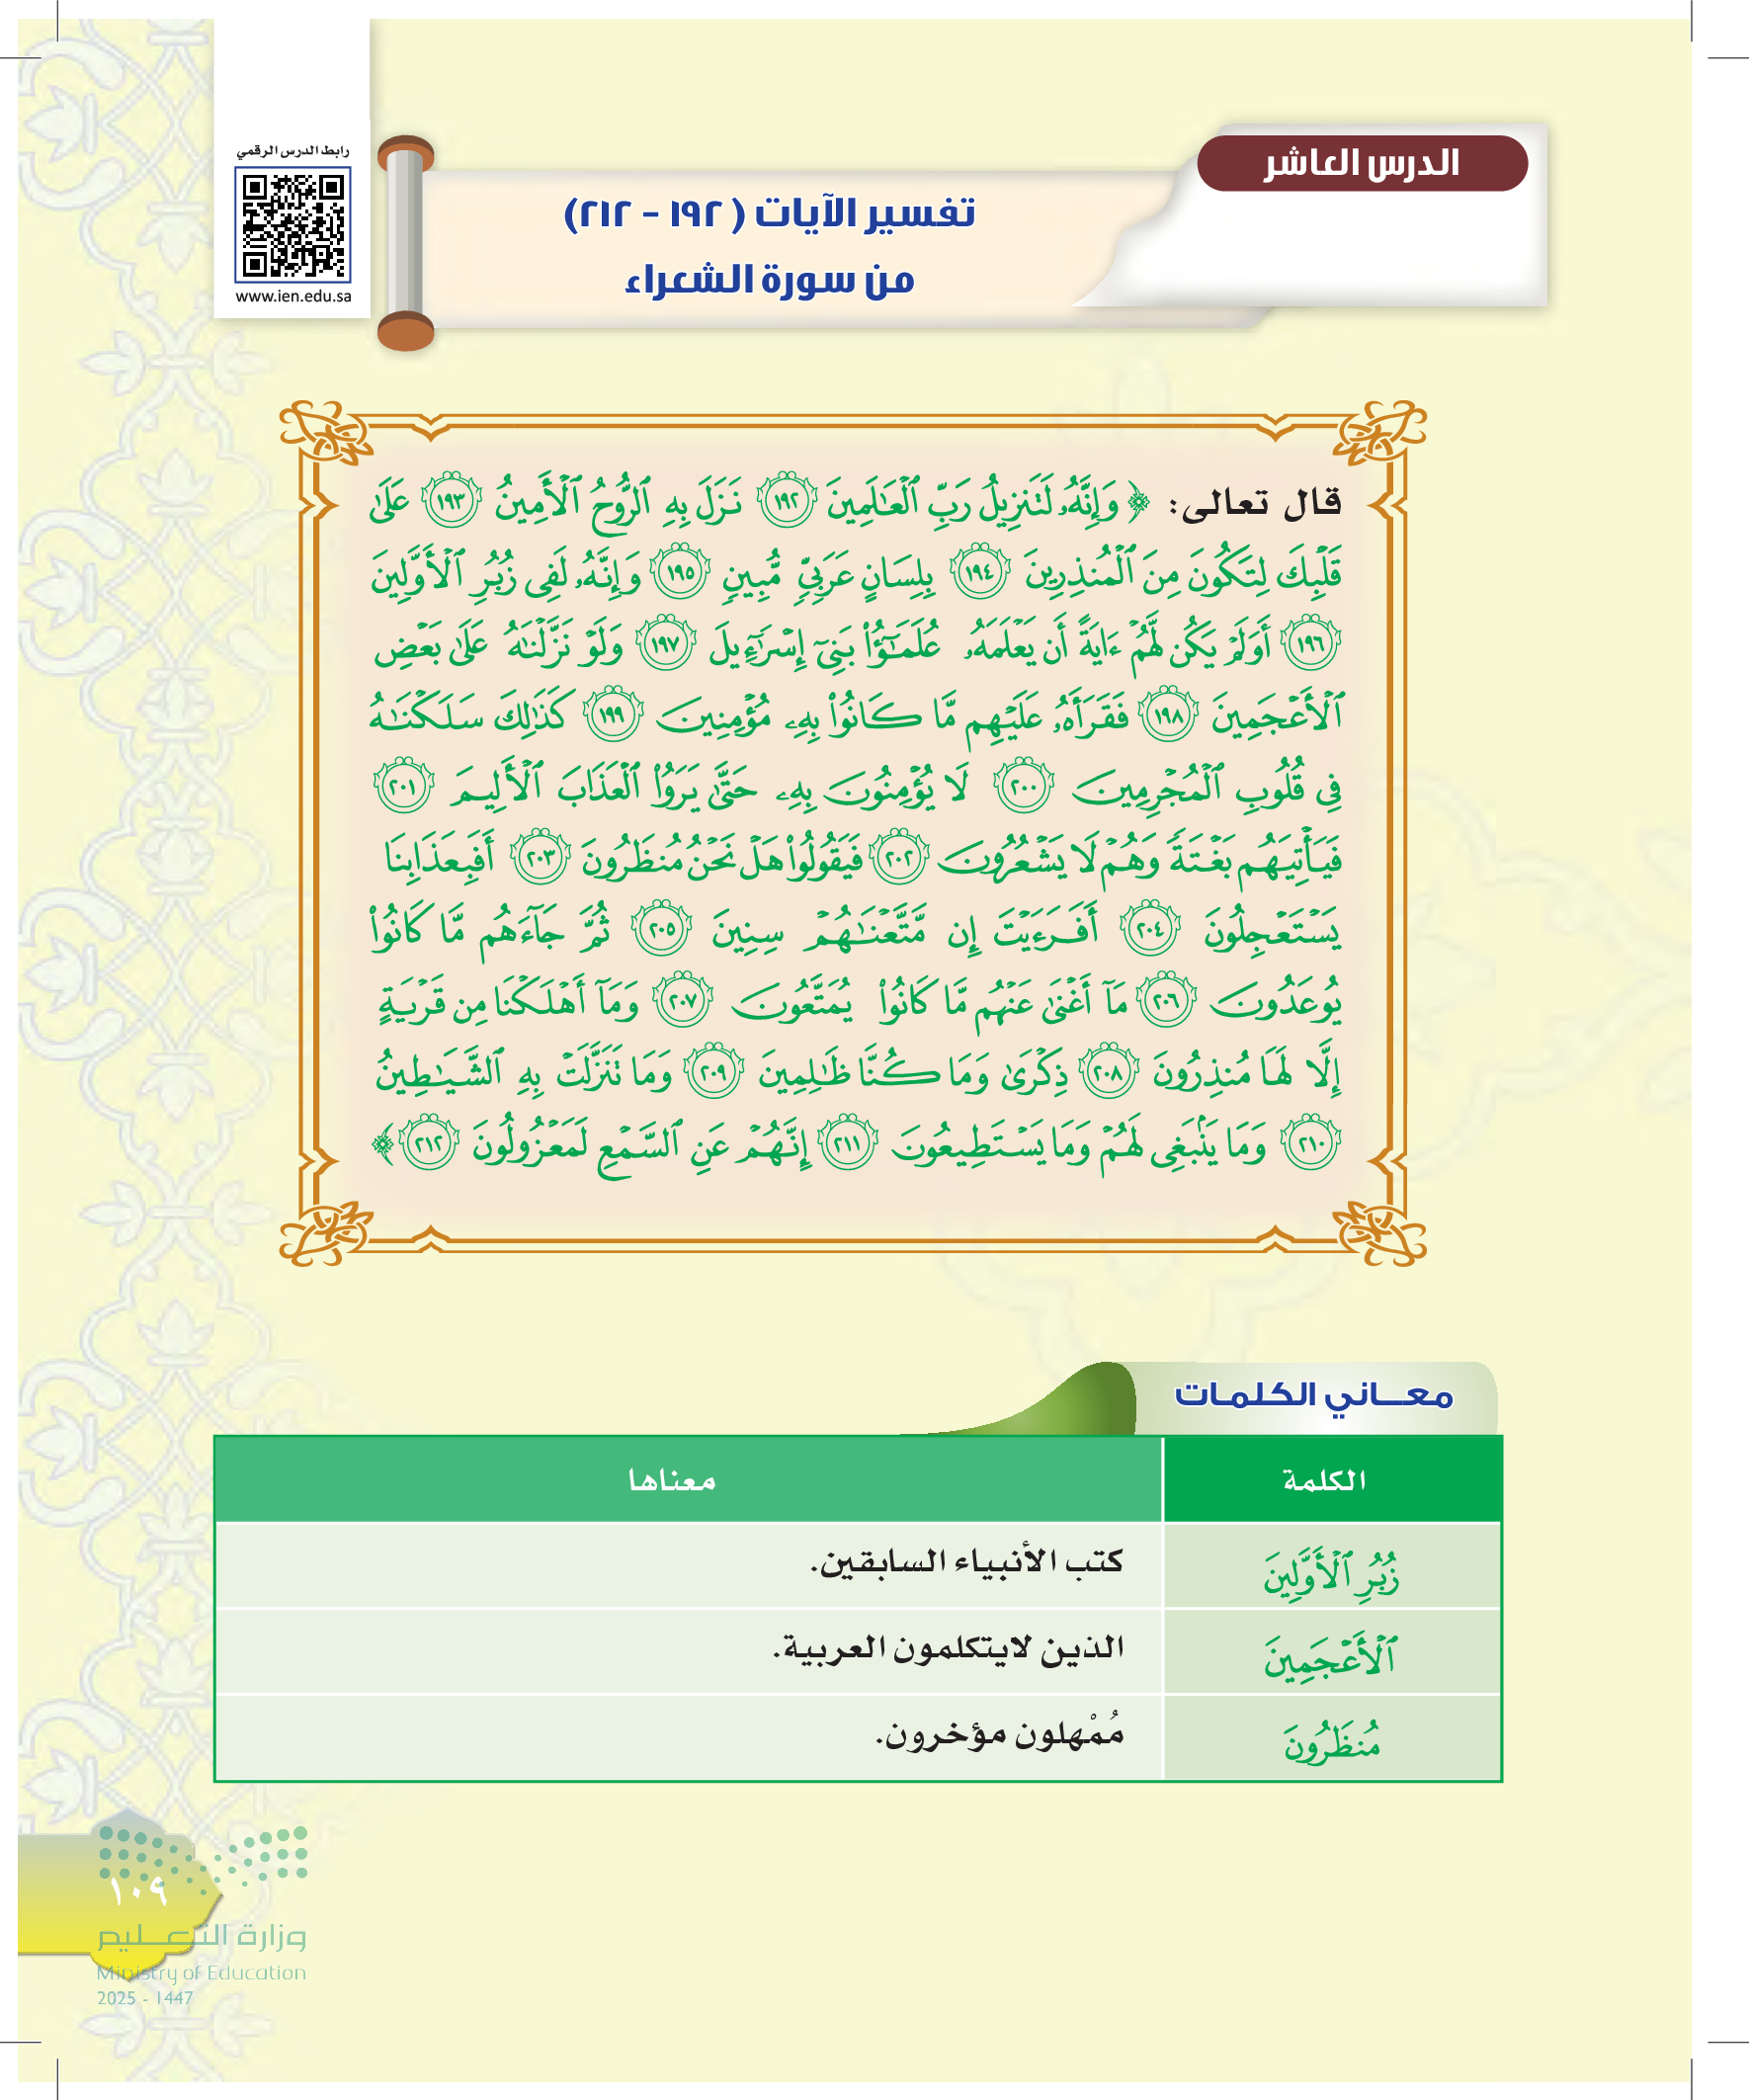 الدرس العاشر
رابط الدرس الرقمي
www.ien.edu.sa
تفسير الآيات (١٩٢ - ٢١٢)
من سورة الشعراء
قال تعالى: ﴿وَإِنَّهُۥ لَتَنزِيلُ رَبِّ ٱلۡعَٰلَمِينَ ١٩٢ نَزَلَ بِهِ ٱلرُّوحُ ٱلۡأَمِينُ ١٩٣ عَلَىٰ
قَلۡبِكَ لِتَكُونَ مِنَ ٱلۡمُنذِرِينَ ١٩٤ بِلِسَانٍ عَرَبِيّٖ مُّبِينٖ ١٩٥ وَإِنَّهُۥ لَفِي زُبُرِ ٱلۡأَوَّلِينَ
١٩٦ أَوَلَمۡ يَكُن لَّهُمۡ ءَايَةً أَن يَعۡلَمَهُۥ عُلَمَٰٓؤُاْ بَنِيٓ إِسۡرَٰٓءِيلَ ١٩٧ وَلَوۡ نَزَّلۡنَٰهُ عَلَىٰ بَعۡضِ
ٱلۡأَعۡجَمِينَ ١٩٨ فَقَرَأَهُۥ عَلَيۡهِم مَّا كَانُواْ بِهِۦ مُؤۡمِنِينَ ١٩٩ كَذَٰلِكَ سَلَكۡنَٰهُ
فِي قُلُوبِ ٱلۡمُجۡرِمِينَ ٢٠٠ لَا يُؤۡمِنُونَ بِهِۦ حَتَّىٰ يَرَوُاْ ٱلۡعَذَابَ ٱلۡأَلِيمَ ٢٠١
فَيَأۡتِيَهُم بَغۡتَةٗ وَهُمۡ لَا يَشۡعُرُونَ ٢٠٢ فَيَقُولُواْ هَلۡ نَحۡنُ مُنظَرُونَ ٢٠٣ أَفَبِعَذَابِنَا
يَسۡتَعۡجِلُونَ ٢٠٤ أَفَرَءَيۡتَ إِن مَّتَّعۡنَٰهُمۡ سِنِينَ ٢٠٥ ثُمَّ جَآءَهُم مَّا كَانُواْ
يُوعَدُونَ ٢٠٦ مَآ أَغۡنَىٰ عَنۡهُم مَّا كَانُواْ يُمَتَّعُونَ ٢٠٧ وَمَآ أَهۡلَكۡنَا مِن قَرۡيَةٍ
إِلَّا لَهَا مُنذِرُونَ ٢٠٨ ذِكۡرَىٰ وَمَا كُنَّا ظَٰلِمِينَ ٢٠٩ وَمَا تَنَزَّلَتۡ بِهِ ٱلشَّيَٰطِينُ
٢١٠ وَمَا يَنۢبَغِي لَهُمۡ وَمَا يَسۡتَطِيعُونَ ٢١١ إِنَّهُمۡ عَنِ ٱلسَّمۡعِ لَمَعۡزُولُونَ ٢١٢﴾
معـــاني الكلمات
الكلمة معناها
زُبُرِ ٱلۡأَوَّلِينَ كتب الأنبياء السابقين.
ٱلۡأَعۡجَمِينَ الذين لايتكلمون العربية.
مُنظَرُونَ مُمْهلون مؤخرون.
١٠٩
وزارة التعـــليم
Ministry of Education
2025 - 1447